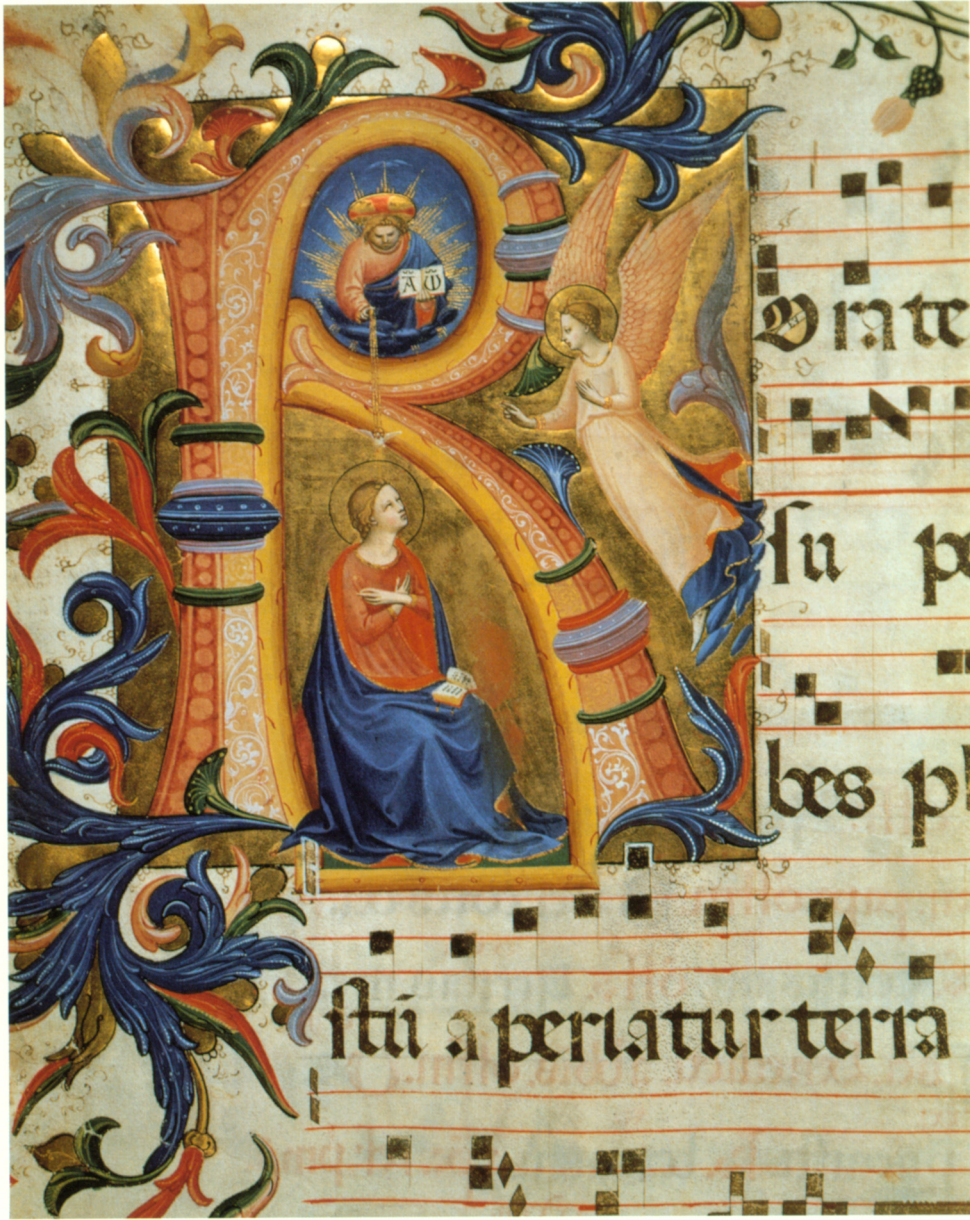 A Ꞷ
ROrate
ſu pe
bes pl
ſtū a periatur terra